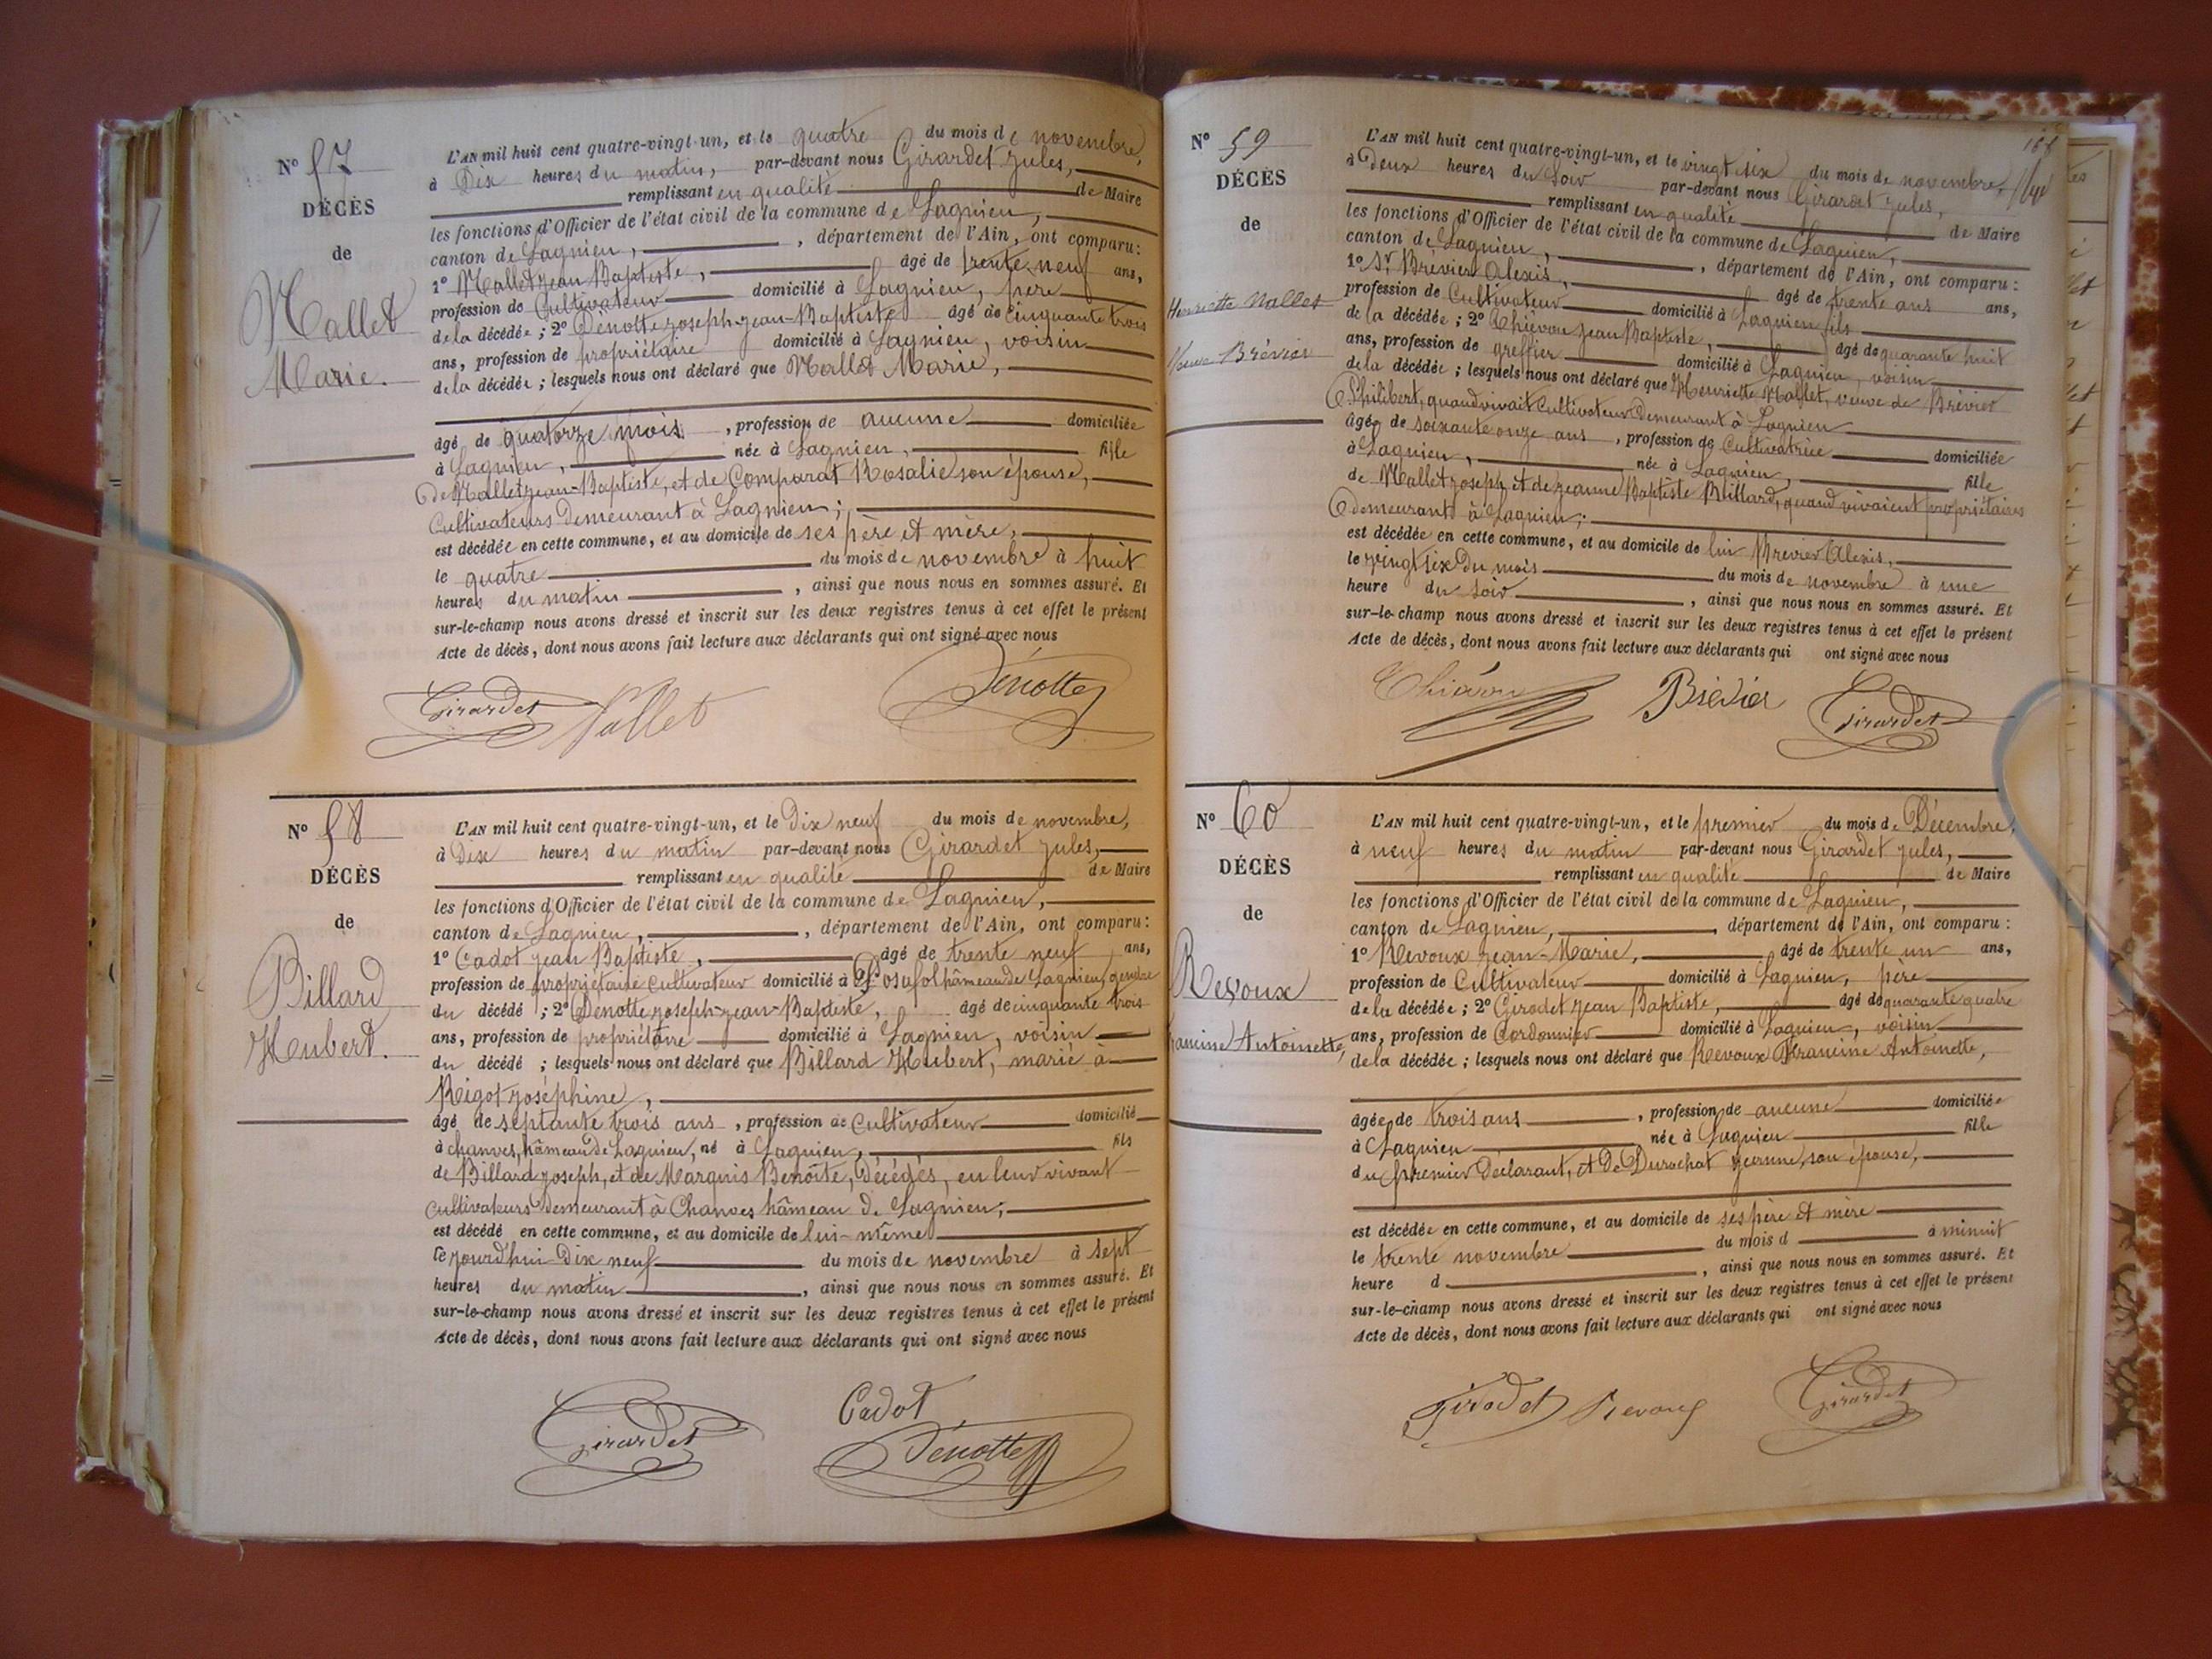 N° 57
DÉCÈS
de
Mallet
Marie.
L'AN mil huit cent quatre-vingt-un, et le quatre du mois de novembre,
à Dix heures du matin, par-devant nous Girardet Jules,
remplissant en qualité de Maire
les fonctions d'Officier de l'état civil de la commune de Lagnieu,
canton de Lagnieu, , département de l'Ain, ont comparu:
1° Mallet Jean Baptiste, âgé de trente neuf ans,
profession de Cultivateur domicilié à Lagnieu, père
de la décédée; 2° Dénotte Joseph-Jean-Baptiste âgé de cinquante trois
ans, profession de propriétaire domicilié à Lagnieu, voisin
de la décédée; lesquels nous ont déclaré que Mallet Marie,
âgé de quatorze mois, profession de aucune domiciliée
à Lagnieu, née à Lagnieu, fille
De Mallet Jean-Baptiste, et de Comparat Rosalie son épouse,
Cultivateurs Demeurant à Lagnieu;
est décédée en cette commune, et au domicile de ses père et mère,
le quatre du mois de novembre à huit
heures du matin, ainsi que nous nous en sommes assuré. Et
sur-le-champ nous avons dressé et inscrit sur les deux registres tenus à cet effet le présent
Acte de décès, dont nous avons fait lecture aux déclarants qui ont signé avec nous
Girardet Mallet Dénotte
N° 58
DÉCÈS
de
Billard
Hubert.
L'AN mil huit cent quatre-vingt-un, et le Dix neuf du mois de novembre,
à Dix heures du matin par-devant nous Girardet Jules,
remplissant en qualité de Maire
les fonctions d'Officier de l'état civil de la commune de Lagnieu,
canton de Lagnieu, , département de l'Ain, ont comparu:
1° Cadot Jean Baptiste, âgé de trente neuf ans,
profession de propriétaire cultivateur domicilié à Posafol hâmeau de Lagnieu, gendre
du décédé; 2° Dénotte Joseph-Jean-Baptiste, âgé de cinquante trois
ans, profession de propriétaire domicilié à Lagnieu, voisin
du décédé; lesquels nous ont déclaré que Billard Hubert, marié à
Rigot Joséphine,
âgé de septante trois ans, profession de Cultivateur domicilié
à chanves, hâmeau de Lagnieu, né à Lagnieu, fils
de Billard Joseph, et de Marquis Benoîte, Décédés, en leur vivant
cultivateurs Demeurant à Chanves hâmeau de Lagnieu;
est décédé en cette commune, et au domicile de lui-même
le jourd'hui Dix neuf du mois de novembre à sept
heures du matin, ainsi que nous nous en sommes assuré. Et
sur-le-champ nous avons dressé et inscrit sur les deux registres tenus à cet effet le présent
Acte de décès, dont nous avons fait lecture aux déclarants qui ont signé avec nous
Girardet Cadot
Dénotte
N° 59
DÉCÈS
de
Henriette Mallet
Veuve Brévier
L'AN mil huit cent quatre-vingt-un, et le vingt six du mois de novembre,
à Deux heures du Soir par-devant nous Girardet Jules,
remplissant en qualité de Maire
les fonctions d'Officier de l'état civil de la commune de Lagnieu,
canton de Lagnieu, , département de l'Ain, ont comparu:
1° Sr Brévier Alexis, âgé de trente ans ans,
profession de Cultivateur domicilié à Lagnieu fils
de la décédée; 2° Thiévon Jean Baptiste, âgé de quarante huit
ans, profession de greffier domicilié à Lagnieu, voisin
de la décédée; lesquels nous ont déclaré que Henriette Mallet, veuve de Brévier
Philibert, quand vivait Cultivateur Demeurant à Lagnieu
âgée de soixante onze ans, profession de Cultivatrice domiciliée
à Lagnieu, née à Lagnieu, fille
de Mallet Joseph et de Jeanne Baptiste Billard, quand vivaient propriétaires
demeurant à Lagnieu;
est décédée en cette commune, et au domicile de lui Brévier Alexis,
le vingt six du mois du mois de novembre à une
heure du soir, ainsi que nous nous en sommes assuré. Et
sur-le-champ nous avons dressé et inscrit sur les deux registres tenus à cet effet le présent
Acte de décès, dont nous avons fait lecture aux déclarants qui ont signé avec nous
Brévier Girardet
N° 60
DÉCÈS
de
Revoux
Francine Antoinette,
L'AN mil huit cent quatre-vingt-un, et le premier du mois de Décembre,
à neuf heures du matin par-devant nous Girardet Jules,
remplissant en qualité de Maire
les fonctions d'Officier de l'état civil de la commune de Lagnieu,
canton de Lagnieu, , département de l'Ain, ont comparu:
1° Revoux Jean-Marie, âgé de trente un ans,
profession de Cultivateur domicilié à Lagnieu, père
de la décédée; 2° Girodet Jean Baptiste, âgé de quarante quatre
ans, profession de Cordonnier domicilié à Lagnieu, voisin
de la décédée; lesquels nous ont déclaré que Revoux Francine Antoinette,
âgée de trois ans, profession de aucune domiciliée
à Lagnieu née à Lagnieu fille
du premier Déclarant, et De Durochat Jeanne, son épouse,
est décédée en cette commune, et au domicile de ses père et mère
le trente novembre du mois d à minuit
heure d, ainsi que nous nous en sommes assuré. Et
sur-le-champ nous avons dressé et inscrit sur les deux registres tenus à cet effet le présent
Acte de décès, dont nous avons fait lecture aux déclarants qui ont signé avec nous
Girodet Revoux Girardet